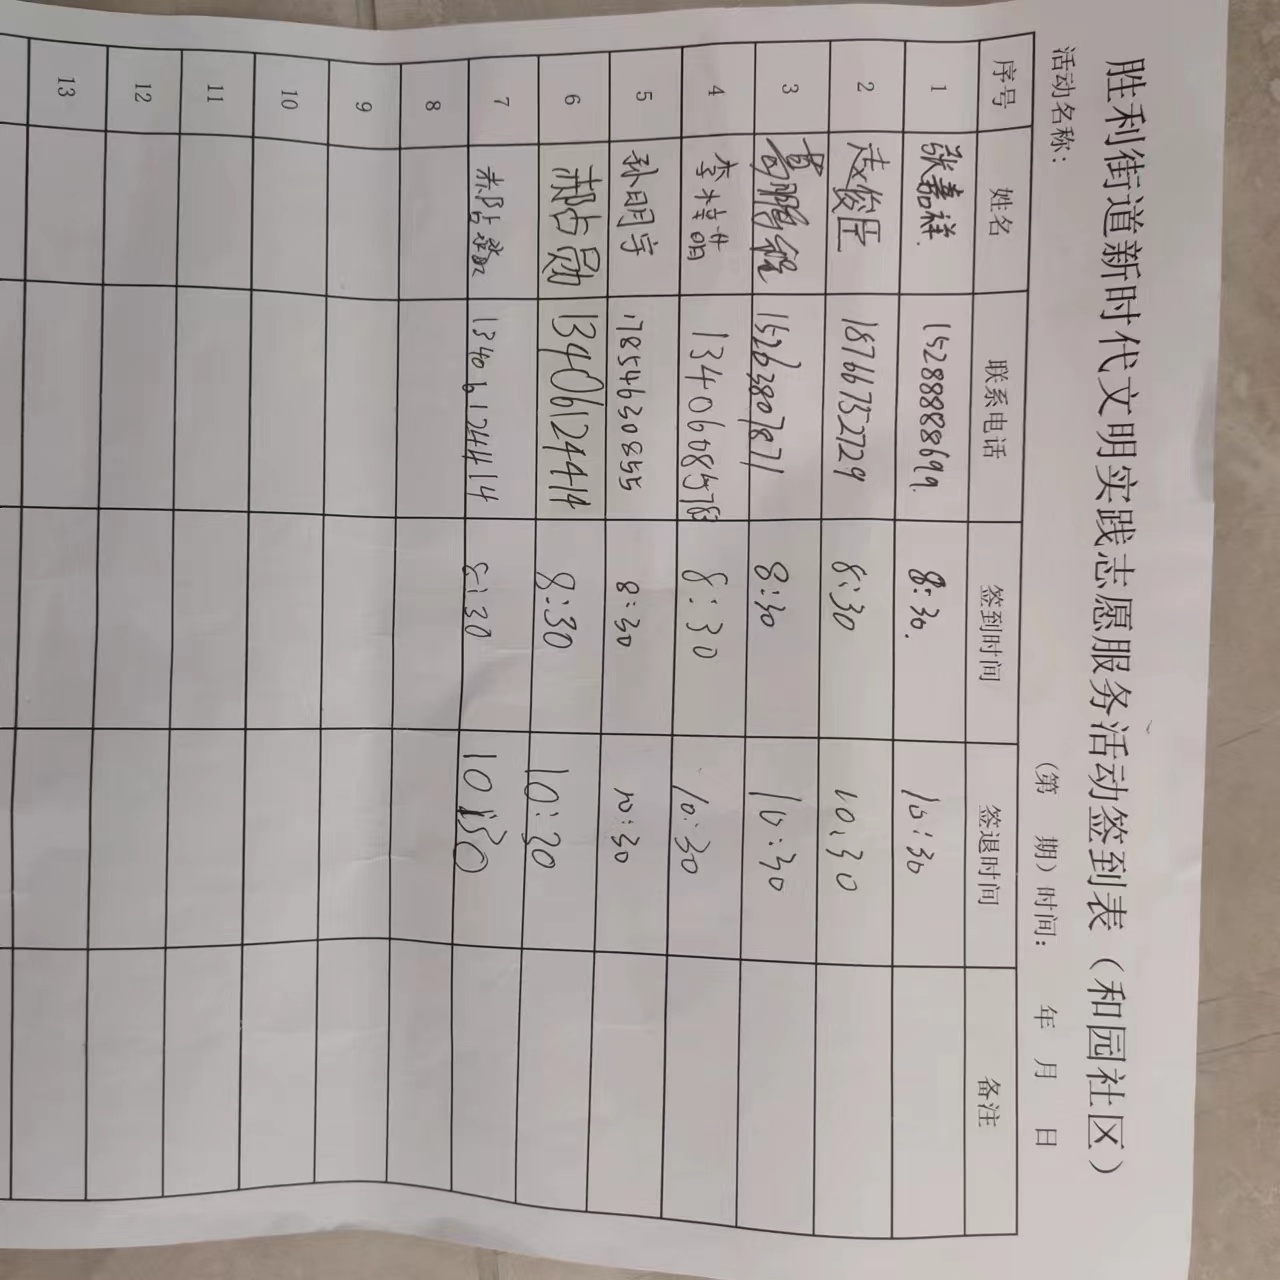 胜利街道新时代文明实践志愿服务活动签到表（和园社区）
活动名称： （第 期）时间： 年 月 日
序号 姓名 联系电话 签到时间 签退时间 备注
1 张嘉祥 15288888699 8:30 10:30
2 赵俊臣 18766752729 8:30 10:30
3 葛鹏程 15263807871 8:30 10:30
4 李 13406085783 8:30 10:30
5 孙明宇 17854630855 8:30 10:30
6 郝占勋 13406124414 8:30 10:30
7 郝占 13406124414 8:30 10:30
8
9
10
11
12
13